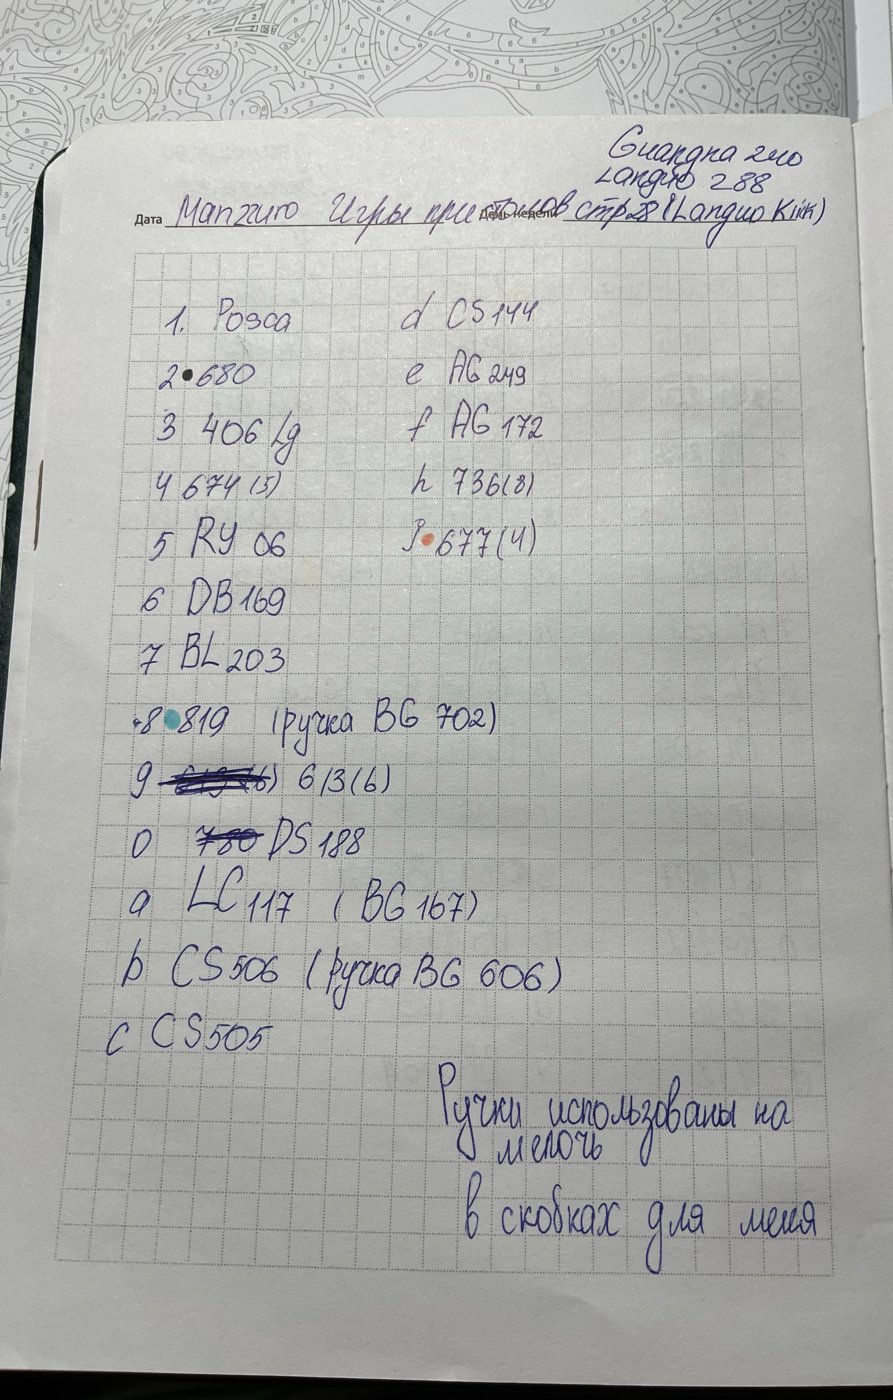 Guangna 240
Languo 288
Дата Manzuro Игры престолов День недели стр 28 (Languo Kirik)
1. Роза
2 680
3 406 Lg
4 674 (5)
5 RY 06
6 DB 169
7 BL 203
8 819 (ручка BG 702)
9 613 (6)
0 780 DS 188
a LC 117 (BG 167)
b CS 506 (ручка BG 606)
c CS 505
d CS 144
e AG 249
f AG 172
h 736 (8)
677 (4)
Ручки использованы на
мелочь
в скобках для меня